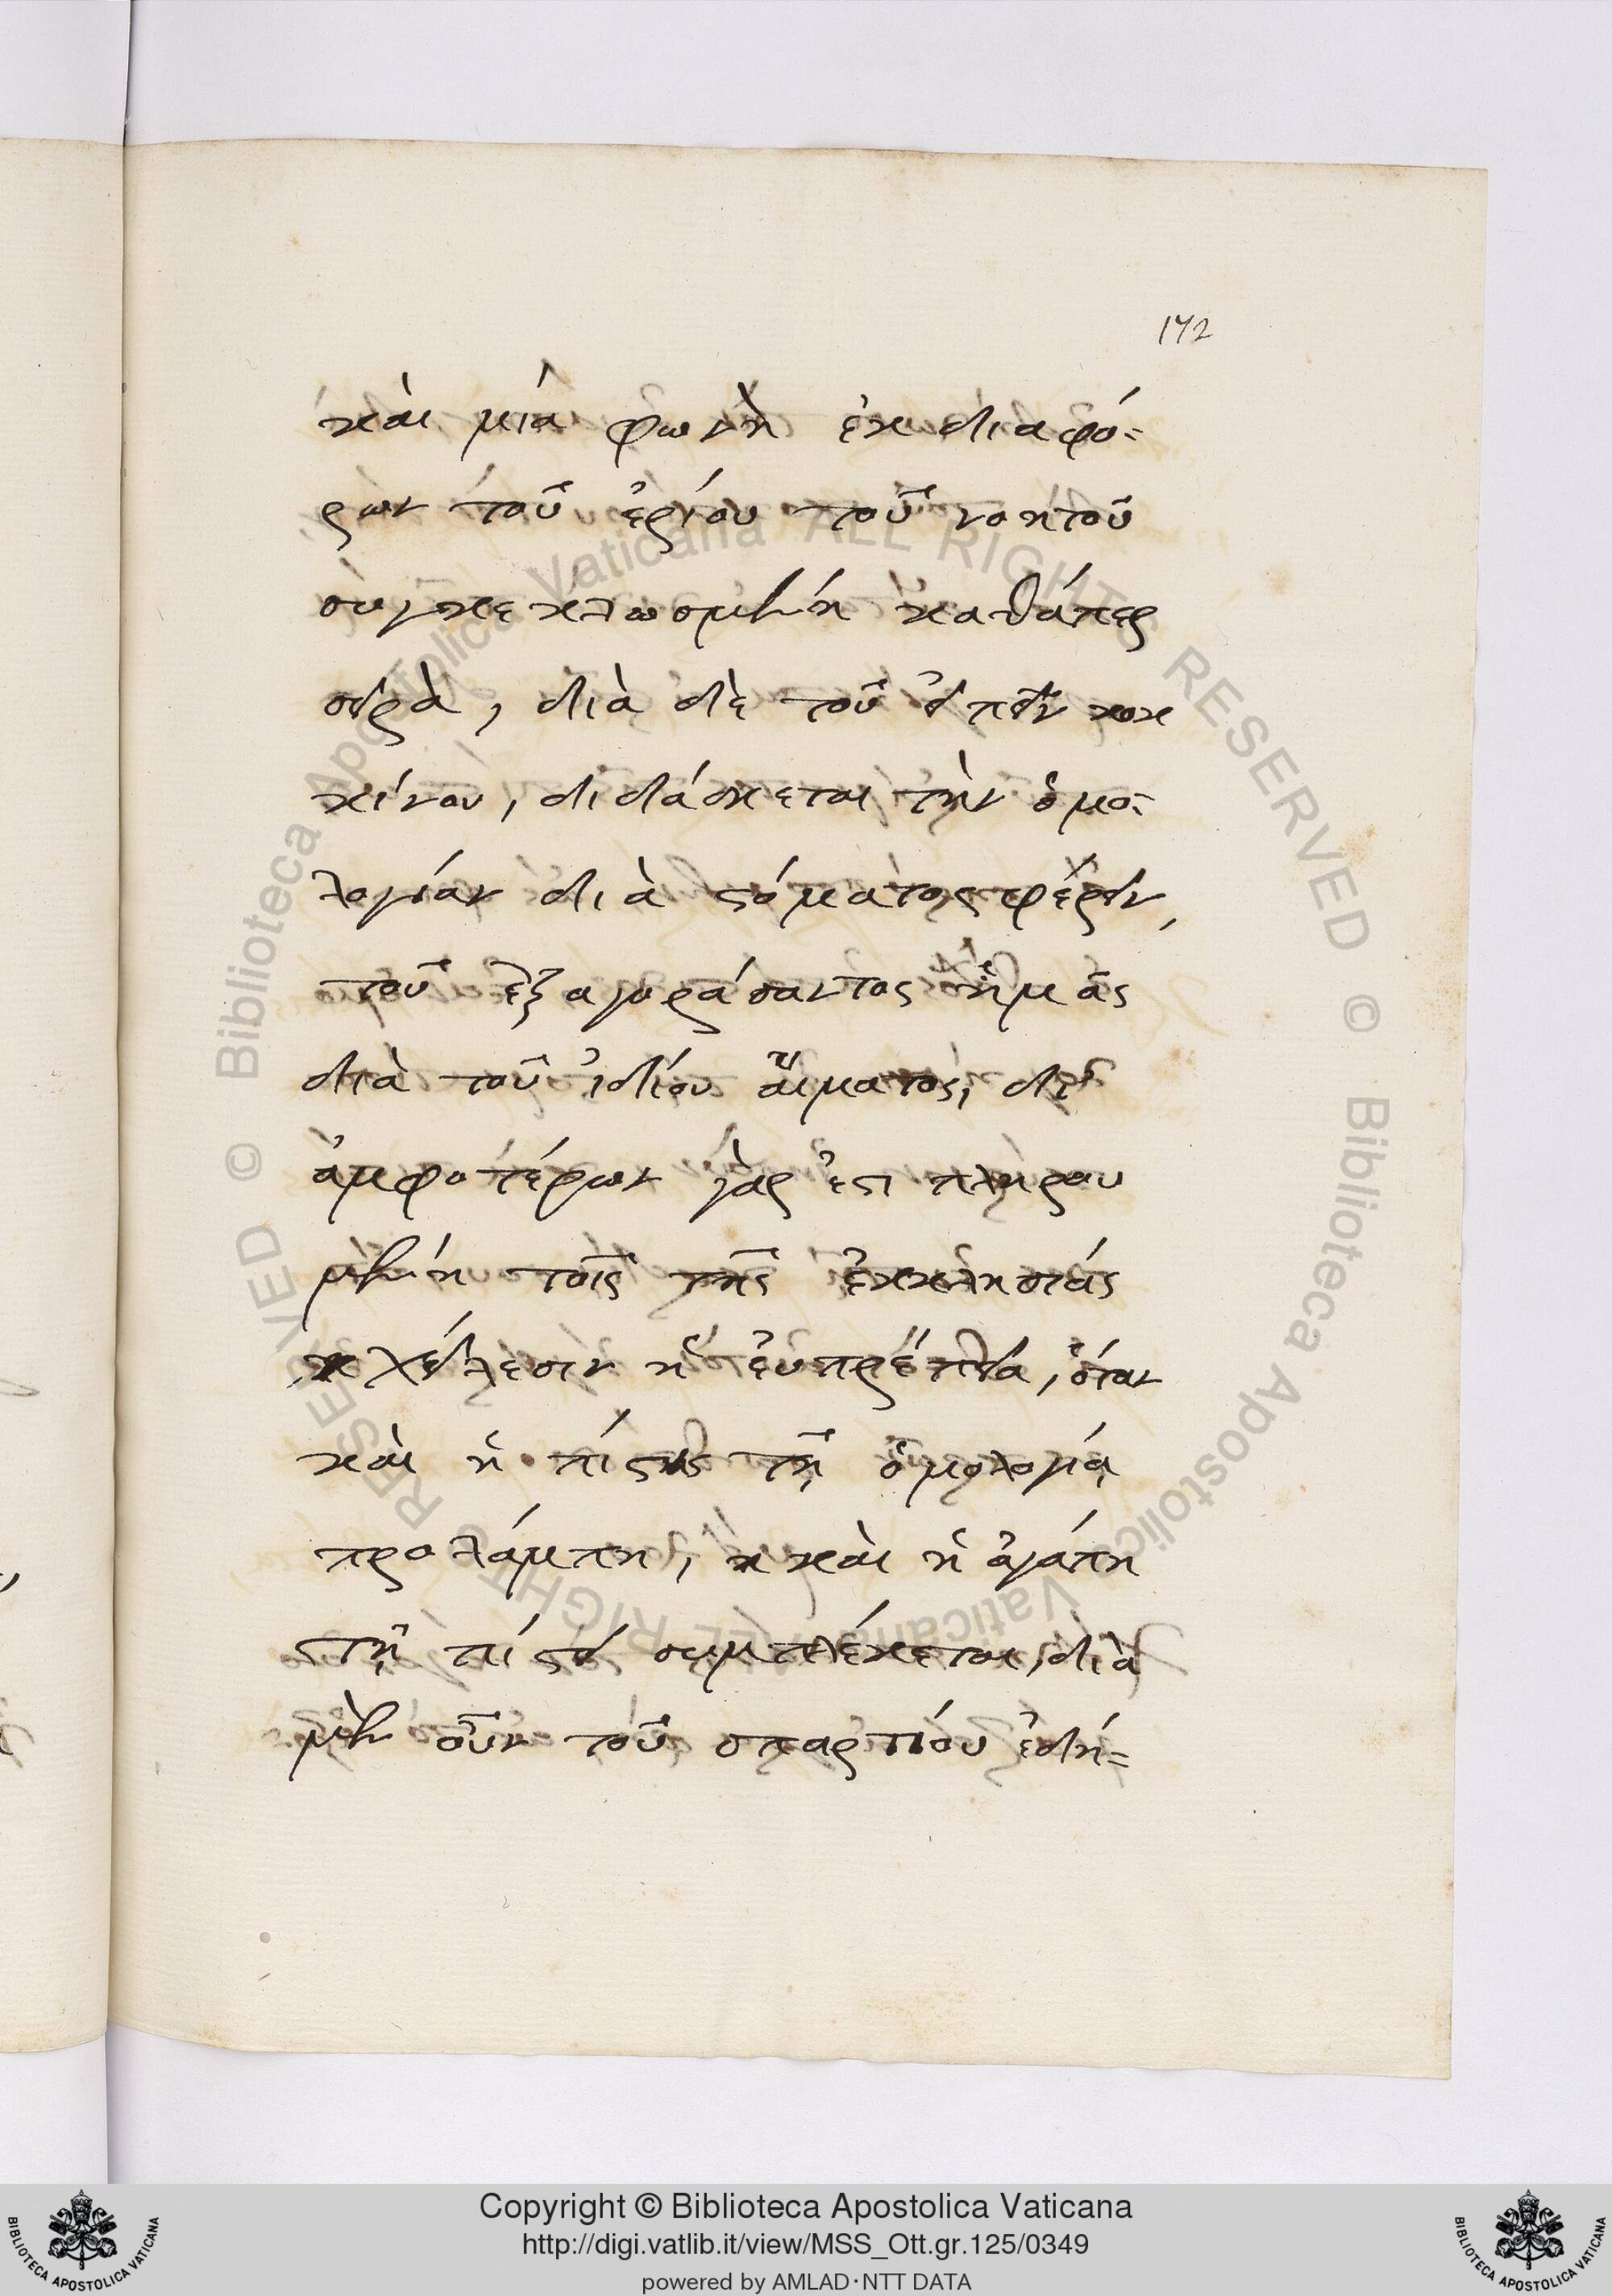 172
καὶ μία φωνὴ ἐκ διαφό=
ρων τοῦ ἐρίου τοῦ νοητοῦ
συγκεκλωσμένη καθάπερ
σειρὰ, διὰ δὲ τοῦ εἰπεῖν κοκ
κίνου, διδάσκεται τὴν ὁμο=
λογίαν διὰ στόματος φέρειν,
τοῦ ἐξαγοράσαντος ἡμᾶς
διὰ τοῦ ἰδίου αἵματος, δι'
ἀμφοτέρων γὰρ ἐστι πληρου
μένη τοῖς τῆς ἐκκλησίας
χείλεσιν ἡ εὐπρέπεια, ὅταν
καὶ ἡ πίστις τῇ ὁμολογίᾳ
προλάμπη, καὶ ἡ ἀγάπη
τῇ πίστει συμπλέκεται, διὰ
μὲν οὖν τοῦ σπαρτίου ἐδή=
Biblioteca Apostolica Vaticana ALL RIGHTS RESERVED ©
Biblioteca Apostolica Vaticana ALL RIGHTS RESERVED ©
Copyright © Biblioteca Apostolica Vaticana
http://digi.vatlib.it/view/MSS_Ott.gr.125/0349
powered by AMLAD·NTT DATA
BIBLIOTECA APOSTOLICA VATICANA
BIBLIOTECA APOSTOLICA VATICANA